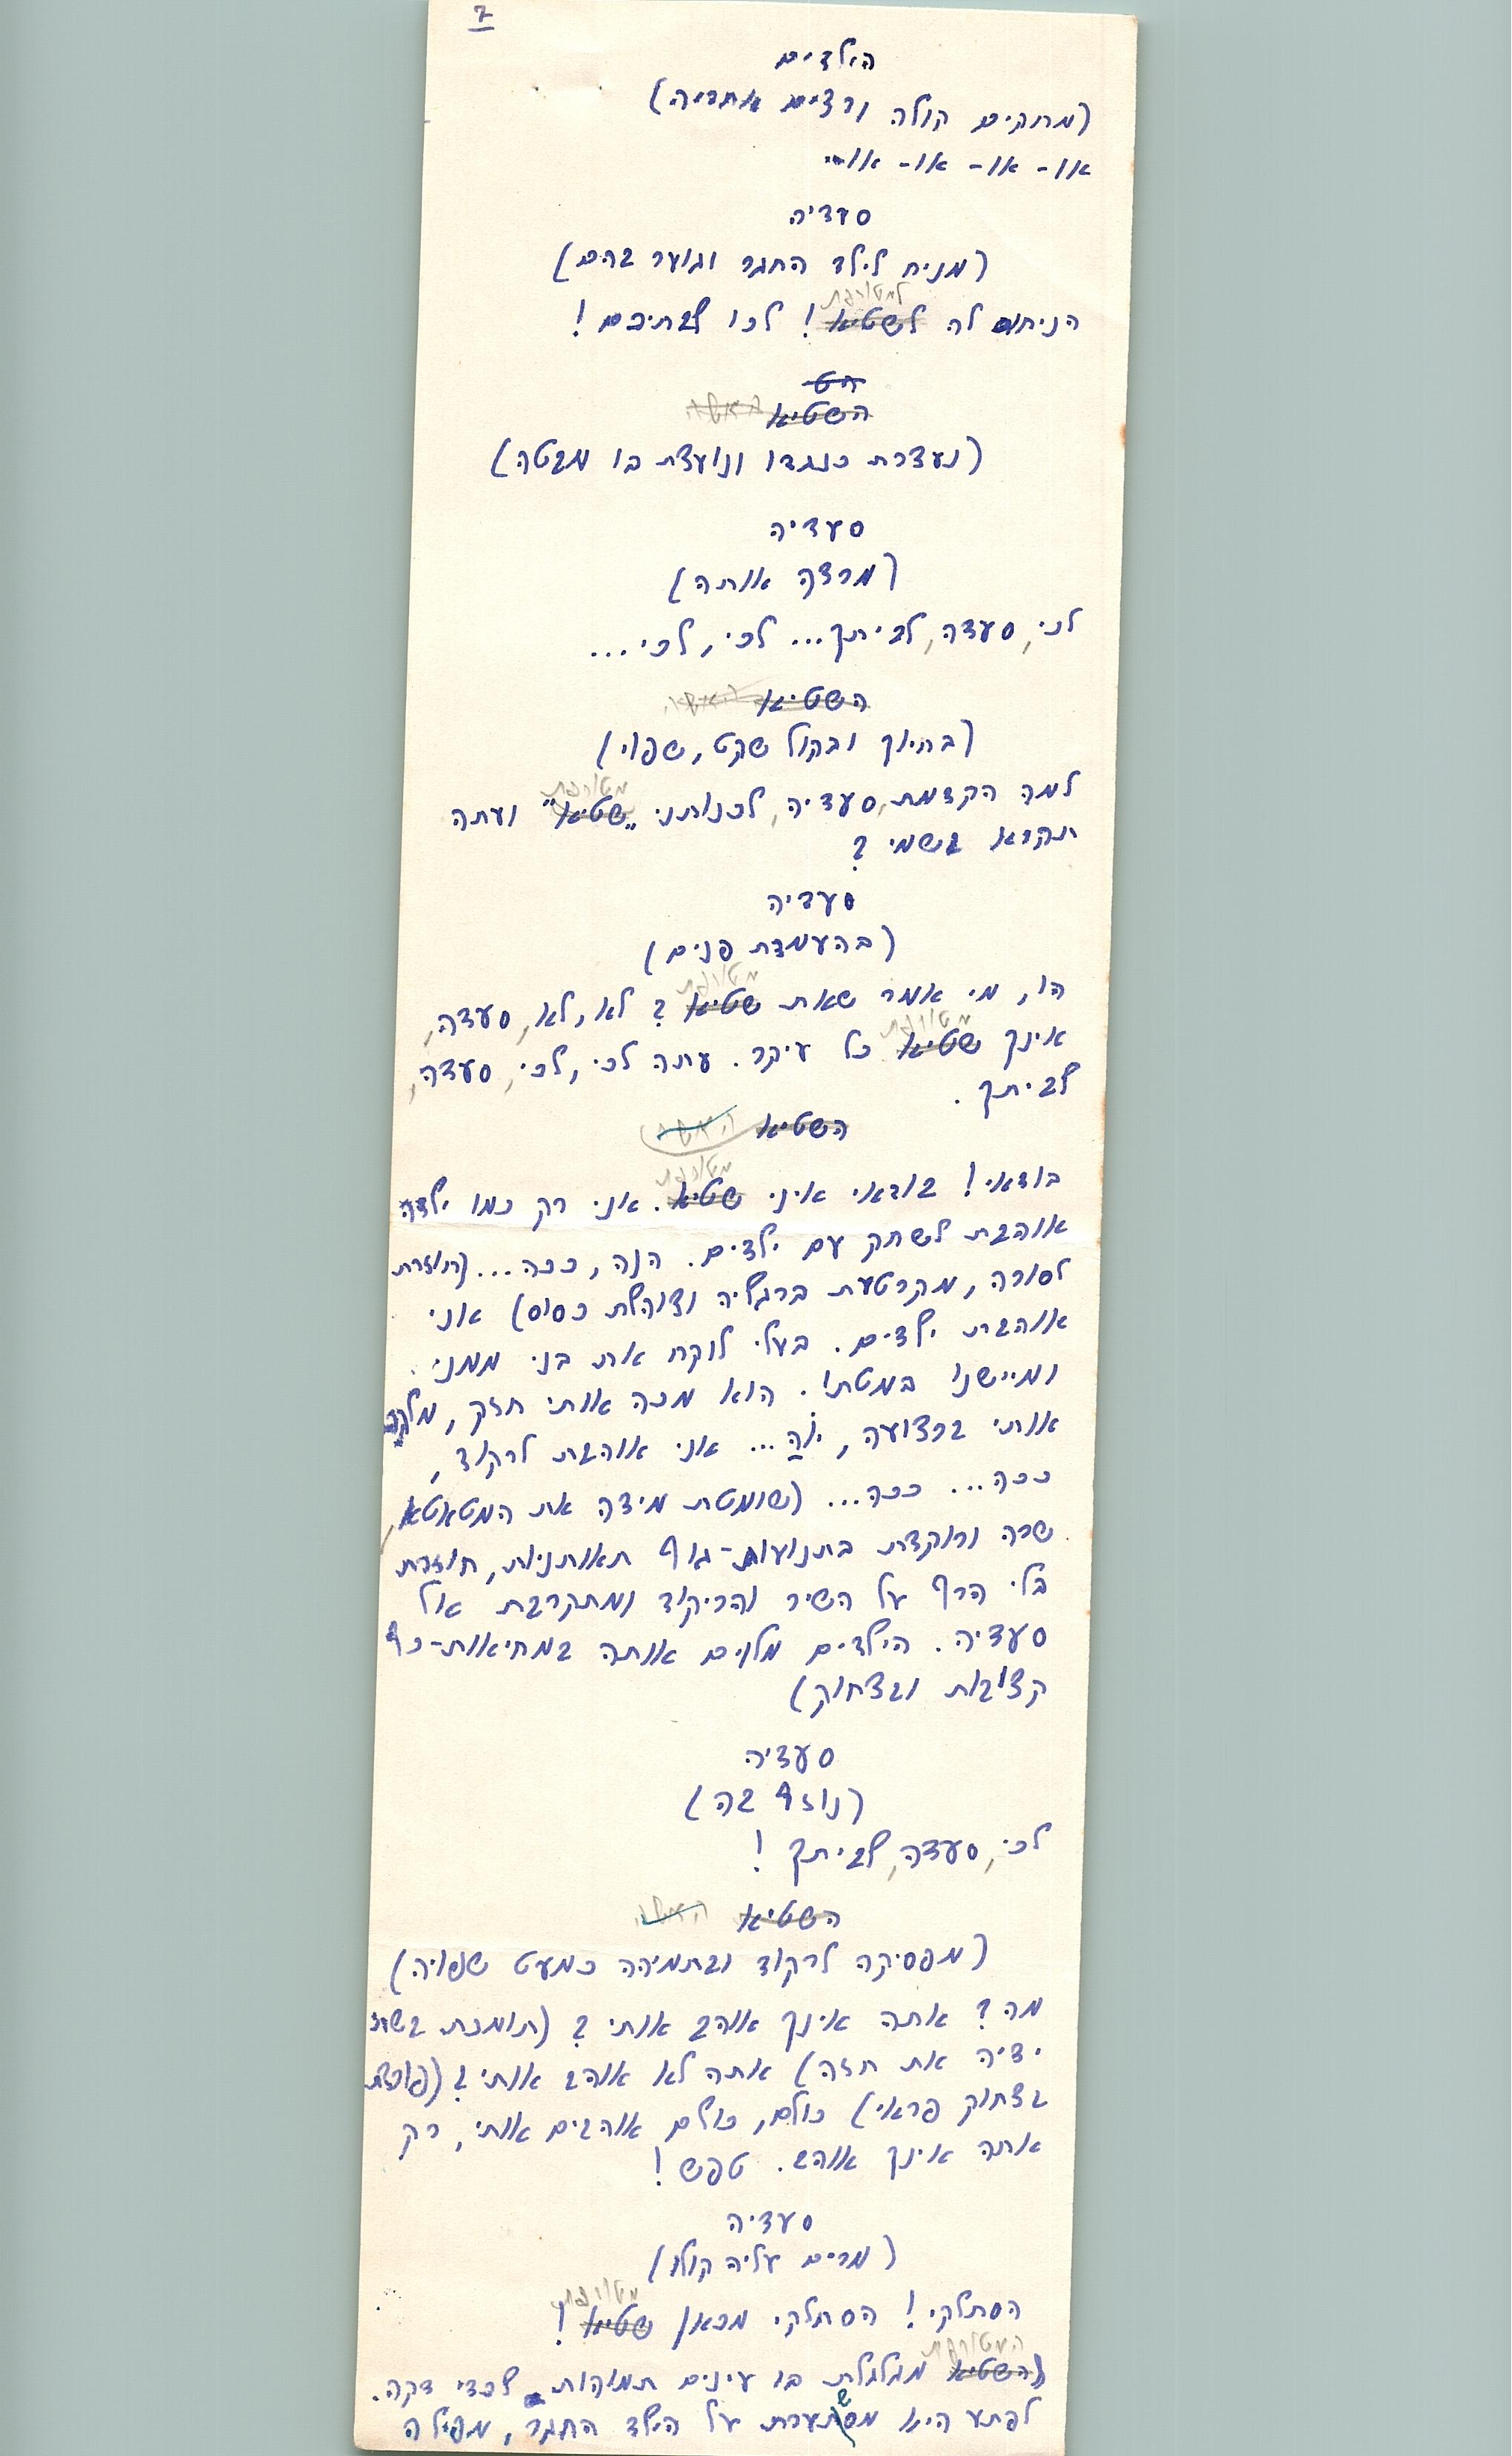 7
הילדים
(מחקים קולה ורצים אחריה)
או - או - או - או..
סעדיה
(מניח לילד החגר וגוער בהם)
למטורפת
הניחו לה לשטיא! לכו לבתיכם!
הש
השטיא האשה
(נעצרת כנגדו ונועצת בו מבטה)
סעדיה
(מרצה אותה)
לכי, סעדה, לביתך... לכי, לכי...
השטיא האשה
(בחיוך ובקול שקט, שפוי)
מטורפת
למה הקדמת, סעדיה, לכנותני "שטיא" ועתה
תקרא בשמי?
סעדיה
(בהעמדת פנים)
מטורפת
הו, מי אמר שאת שטיא? לא, לא, סעדה,
מטורפת
אינך שטיא כל עיקר. עתה לכי, לכי, סעדה,
לביתך.
השטיא האשה
מטורפת
בודאי! בודאי איני שטיא. אני רק כמו ילדה
אוהבת לשחק עם ילדים. הנה, ככה... (חוזרת
לסורה, מקרטעת ברגליה וצוהלת כסוס) אני
אוהבת ילדים. בעלי לוקח את בני ממני
ומיישנו במטתו. הוא מכה אותי חזק, מלקה
אותי ברצועה, יוֹה... אני אוהבת לרקוד,
ככה... ככה... (שומטת מידה את המטאטא,
שרה ורוקדת בתנועות-גוף תאותניות, חוזרת
בלי הרף על השיר והריקוד ומתקרבת אל
סעדיה. הילדים מלוים אותה במחיאות-כף
קצובות ובצחוק)
סעדיה
(נוזף בה)
לכי, סעדה, לביתך!
השטיא האשה
(מפסיקה לרקוד ובתמיהה כמעט שפויה)
מה? אתה אינך אוהב אותי? (תומכת בשתי
ידיה את חזה) אתה לא אוהב אותי? (פורצת
בצחוק פראי) כולם, כולם אוהבים אותי, רק
אתה אינך אוהב. טפש!
סעדיה
(מרים עליה קולו)
מטורפת
הסתלקי! הסתלקי מכאן שטיא!
המטורפת
(השטיא מגלגלת בו עינים תמוהות לכדי דקה.
לפתע היא משתערת על הילד החגר, מפילה